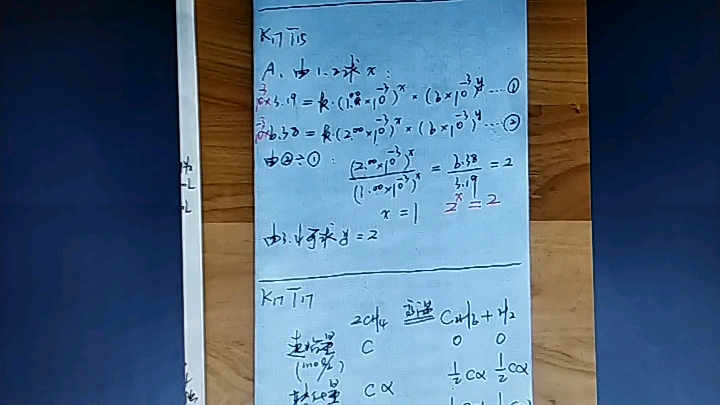 K17 T15
A、由1.2求x:
10⁻³×3.19 = k·(1.00×10⁻³)ˣ × (6×10⁻³)ʸ ……①
10⁻³×6.38 = k·(2.00×10⁻³)ˣ × (6×10⁻³)ʸ ……②
由②÷①: (2.00×10⁻³)ˣ / (1.00×10⁻³)ˣ = 6.38 / 3.19 = 2
x = 1 2ˣ = 2
由3.4可求y = 2
K17 T17
2CH4 高温 C2H2 + H2
起始量 C 0 0
(mol/L)
转化量 Cα ½Cα ½Cα